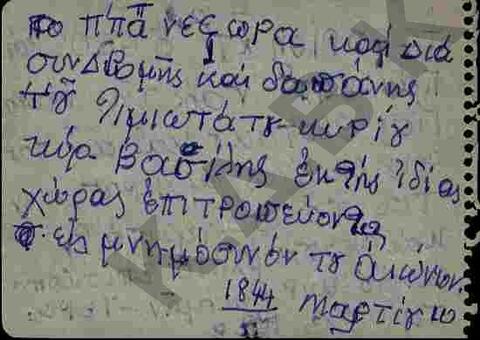 το ππᾶ νεςωρα καὶ διὰ
συνδρομῆς καὶ δαπάνης
τȣ̃ τιμιωτάτȣ κυρίȣ
κύρ Βασίλης ἐκ τῆς ἰδίας
χώρας ἐπιτροπεύοντος
εἰς μνημόσυνόν τȣ αἰώνιον.
1844 Μαρτίȣ 10